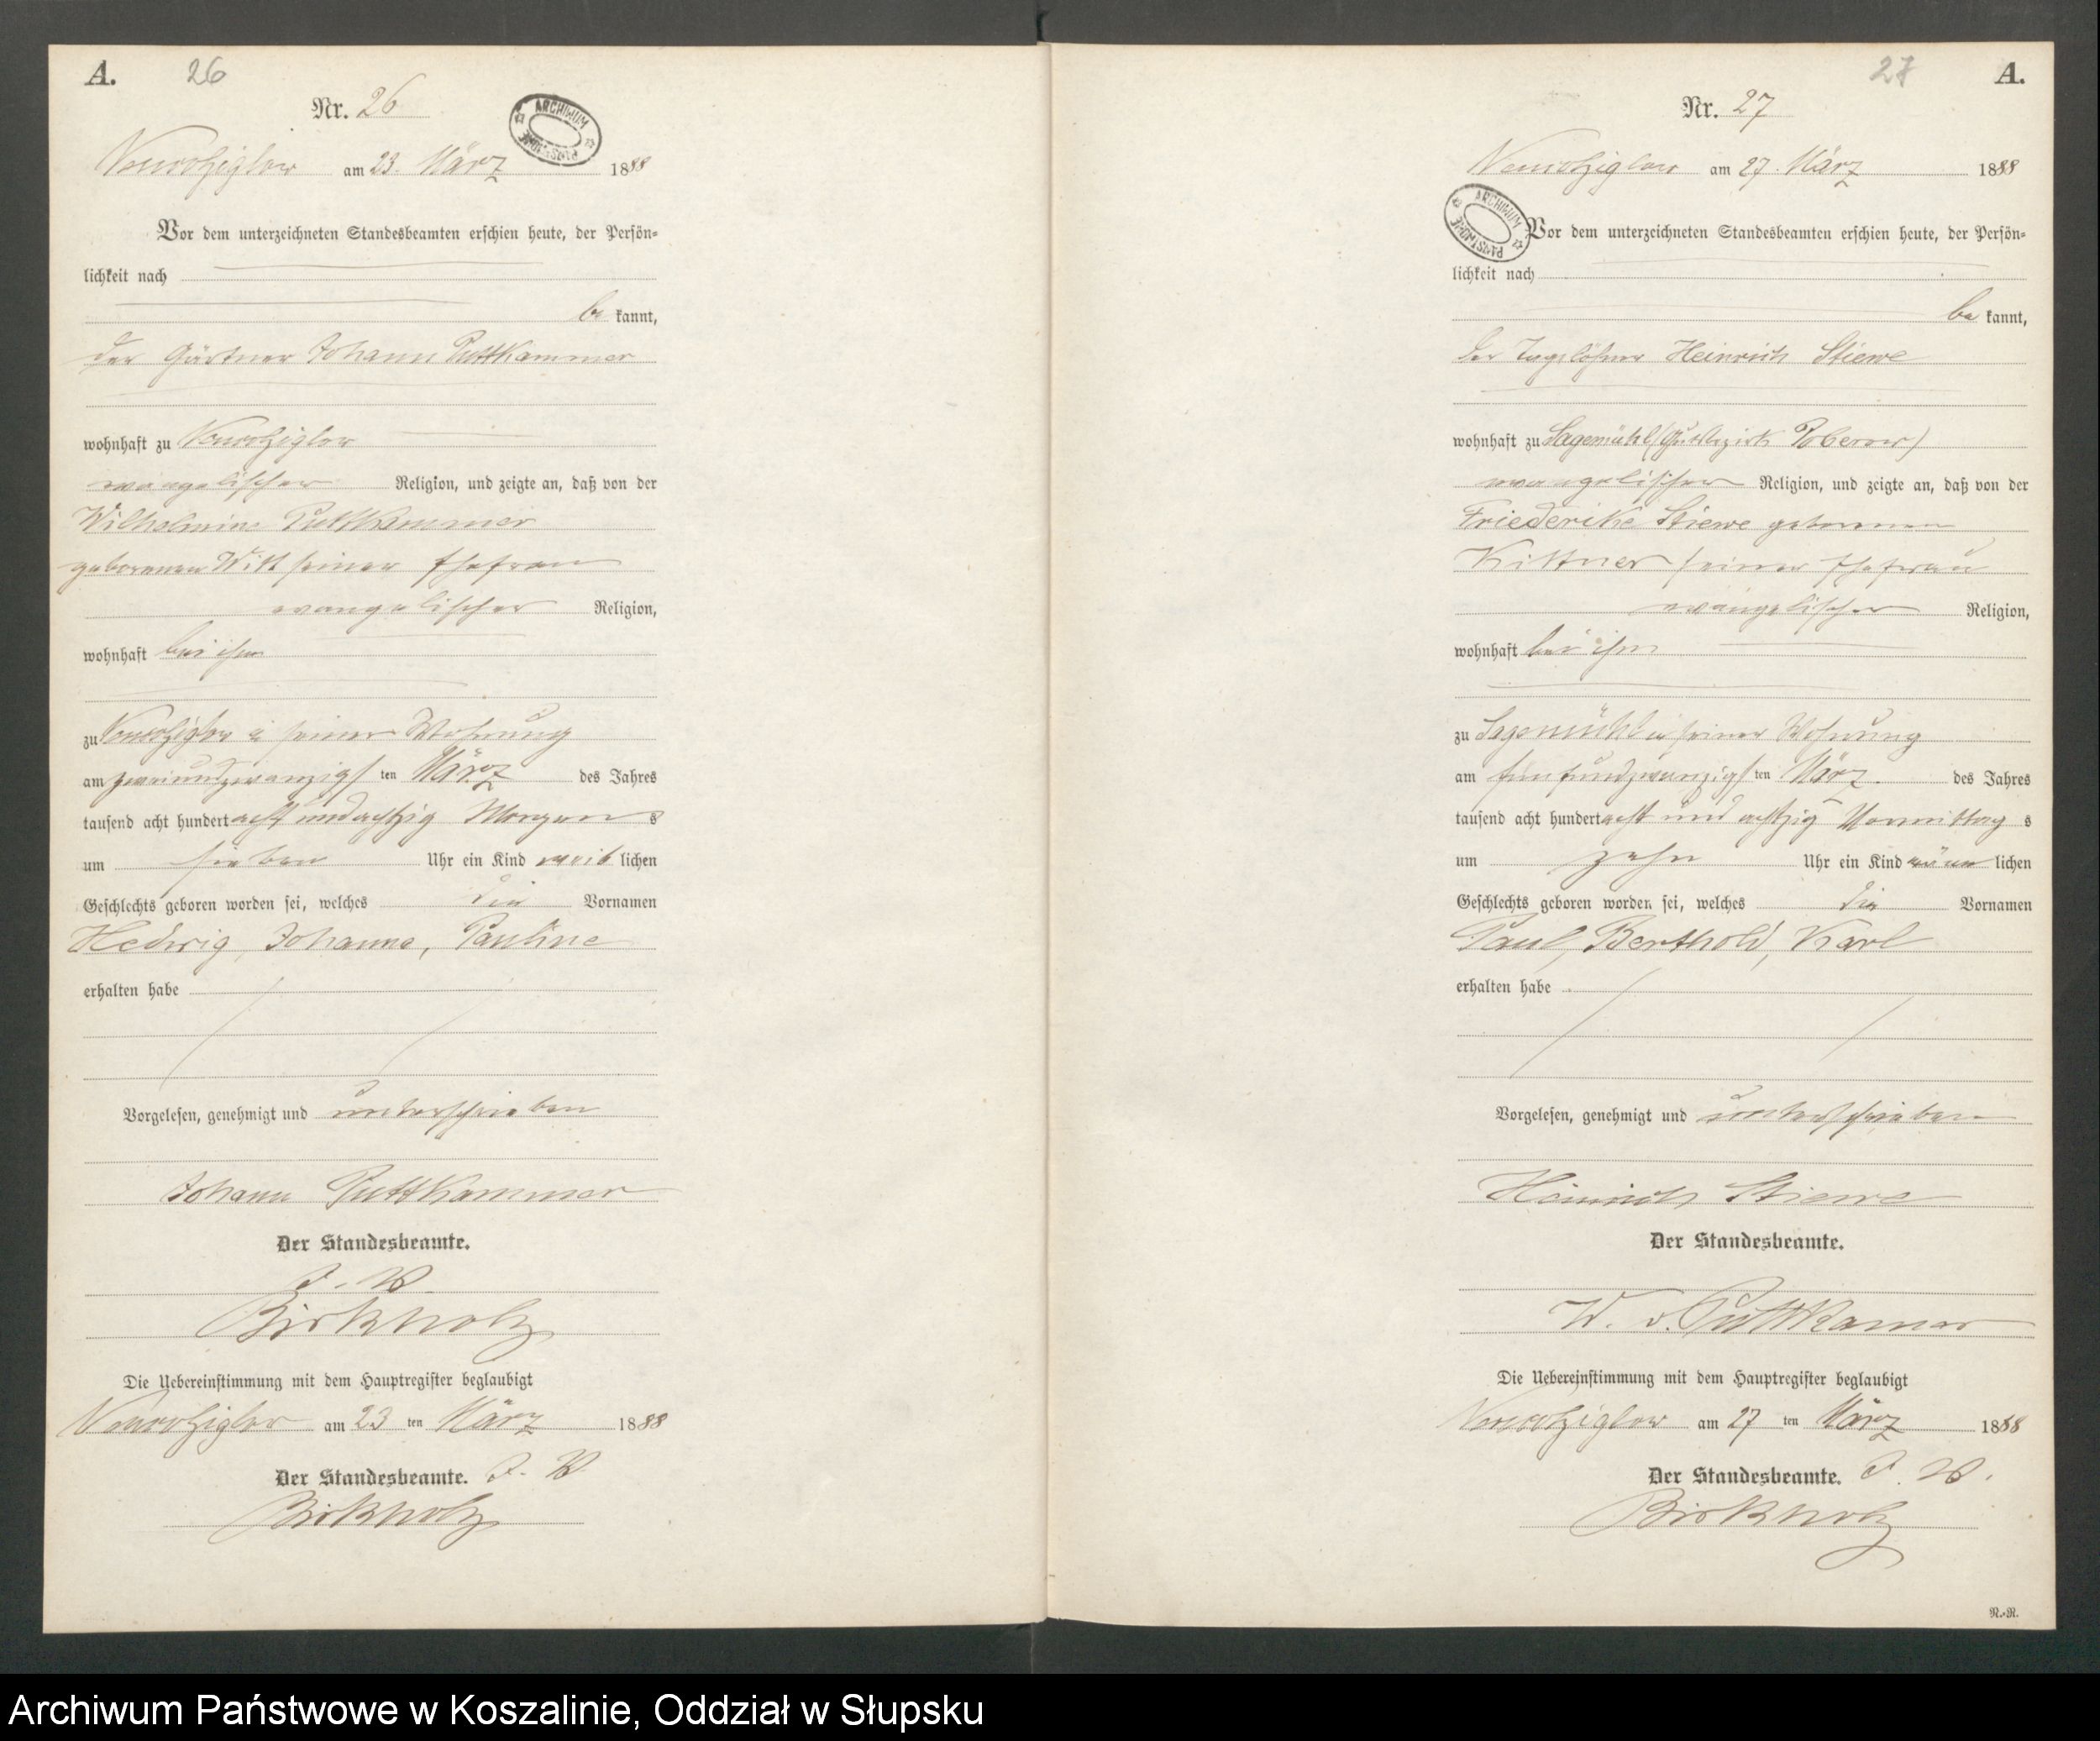 A. 26
Nr. 26
ARCHIWUM PAŃSTWOWE
Neuwolziglow am 23. März 1888
Vor dem unterzeichneten Standesbeamten erschien heute, der Persön-
lichkeit nach
be kannt,
der Gärtner Johann Puttkammer
wohnhaft zu Neuwolziglow
evangelischer Religion, und zeigte an, daß von der
Wilhelmine Puttkammer
geborenen Witt seiner Ehefrau
evangelischer Religion,
wohnhaft bei ihm
zu Neuwolziglow in seiner Wohnung
am zweiundzwanzigsten März des Jahres
tausend acht hundert acht und achtzig Morgens
um sieben Uhr ein Kind weiblichen
Geschlechts geboren worden sei, welches die Vornamen
Hedwig, Johanna, Pauline
erhalten habe
Vorgelesen, genehmigt und unterschrieben
Johann Puttkammer
Der Standesbeamte.
J. V.
Birkholz
Die Uebereinstimmung mit dem Hauptregister beglaubigt
Neuwolziglow am 23 ten März 1888
Der Standesbeamte. J. V.
Birkholz
27 A.
Nr. 27
Neuwolziglow am 27. März 1888
ARCHIWUM PAŃSTWOWE
Vor dem unterzeichneten Standesbeamten erschien heute, der Persön-
lichkeit nach
be kannt,
der Tagelöhner Heinrich Stiewe
wohnhaft zu Sagemühl (Gutsbezirk Poberow)
evangelischer Religion, und zeigte an, daß von der
Friederike Stiewe geborenen
Kittner seiner Ehefrau
evangelischer Religion,
wohnhaft bei ihm
zu Sagemühl in seiner Wohnung
am fünfundzwanzigsten März des Jahres
tausend acht hundert acht und achtzig Vormittags
um zehn Uhr ein Kind männlichen
Geschlechts geboren worden sei, welches die Vornamen
Paul, Berthold, Karl
erhalten habe
Vorgelesen, genehmigt und unterschrieben
Heinrich Stiewe
Der Standesbeamte.
W. v. Puttkamer
Die Uebereinstimmung mit dem Hauptregister beglaubigt
Neuwolziglow am 27 ten März 1888
Der Standesbeamte. J. V.
Birkholz
N.-N.
Archiwum Państwowe w Koszalinie, Oddział w Słupsku